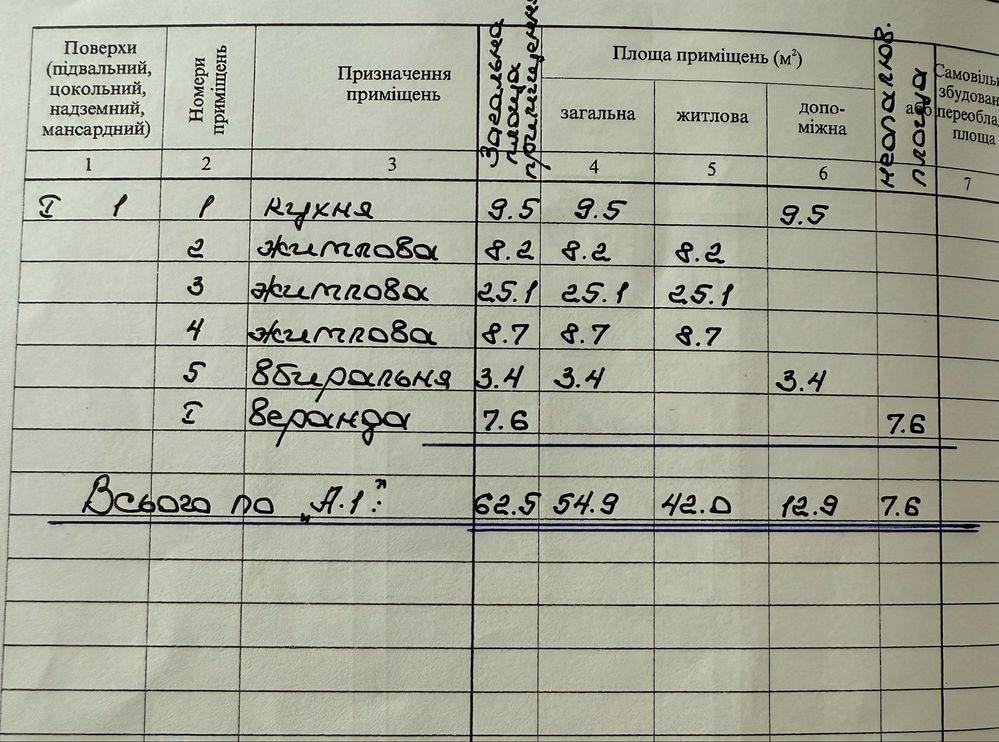 Поверхи (підвальний, цокольний, надземний, мансардний)
Номери приміщень
Призначення приміщень
Загальна площа приміщення
Площа приміщень (м²)
загальна
житлова
допо-міжна
неопалюв. площа
або
Самовіль
збудован
переобла
площа
1 2 3 4 5 6 7
I 1 1 кухня 9.5 9.5 9.5
2 житлова 8.2 8.2 8.2
3 житлова 25.1 25.1 25.1
4 житлова 8.7 8.7 8.7
5 вбиральня 3.4 3.4 3.4
I веранда 7.6 7.6
Всього по „А.1": 62.5 54.9 42.0 12.9 7.6